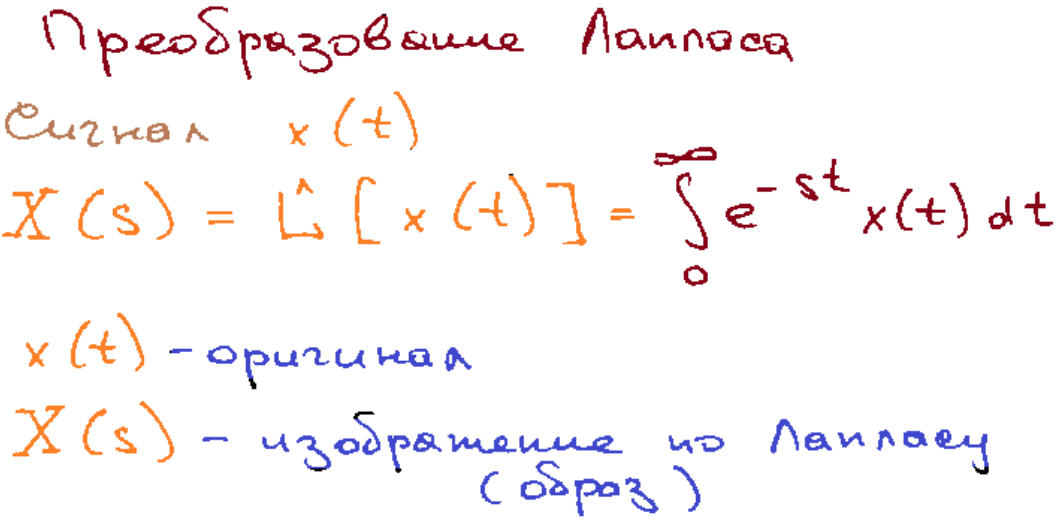 Преобразование Лапласа
Сигнал x(t)
X(s) = L̂[x(t)] = ∫₀^∞ e^{-st} x(t) dt
x(t) - оригинал
X(s) - изображение по Лапласу
(образ)